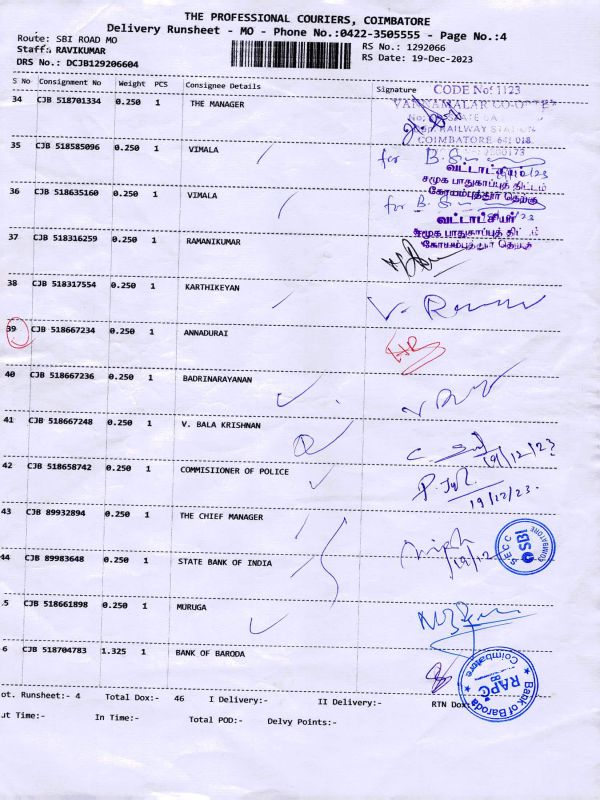 THE PROFESSIONAL COURIERS, COIMBATORE
Delivery Runsheet - MO - Phone No.:0422-3505555 - Page No.:4
Route: SBI ROAD MO
RS No.: 1292066
Staff: RAVIKUMAR
RS Date: 19-Dec-2023
DRS No.: DCJB129206604
S No Consignment No Weight PCS Consignee Details Signature
CODE No: 1123
34 CJB 518701334 0.250 1 THE MANAGER
RAILWAY STATION
COIMBATORE 641 018
35 CJB 518585096 0.250 1 VIMALA
for B.
வட்டாட்சியர்
சமூக பாதுகாப்புத் திட்டம்
36 CJB 518635160 0.250 1 VIMALA
கோயம்புத்தூர் தெற்கு
for B.
வட்டாட்சியர்
சமூக பாதுகாப்புத் திட்
37 CJB 518316259 0.250 1 RAMANIKUMAR
கோயம்புத்தூர் தெற்கு
38 CJB 518317554 0.250 1 KARTHIKEYAN
39 CJB 518667234 0.250 1 ANNADURAI
40 CJB 518667236 0.250 1 BADRINARAYANAN
41 CJB 518667248 0.250 1 V. BALA KRISHNAN
19/12/23
42 CJB 518658742 0.250 1 COMMISIIONER OF POLICE
19/12/23.
43 CJB 89932894 0.250 1 THE CHIEF MANAGER
SECC
SBI
COIMBATORE
19/12
44 CJB 89983648 0.250 1 STATE BANK OF INDIA
5 CJB 518661898 0.250 1 MURUGA
6 CJB 518704783 1.325 1 BANK OF BARODA
Coimbatore
RAPC
Bank of Baroda
ot. Runsheet:- 4 Total Dox:- 46 I Delivery:- II Delivery:- RTN Dox
ut Time:- In Time:- Total POD:- Delvy Points:-